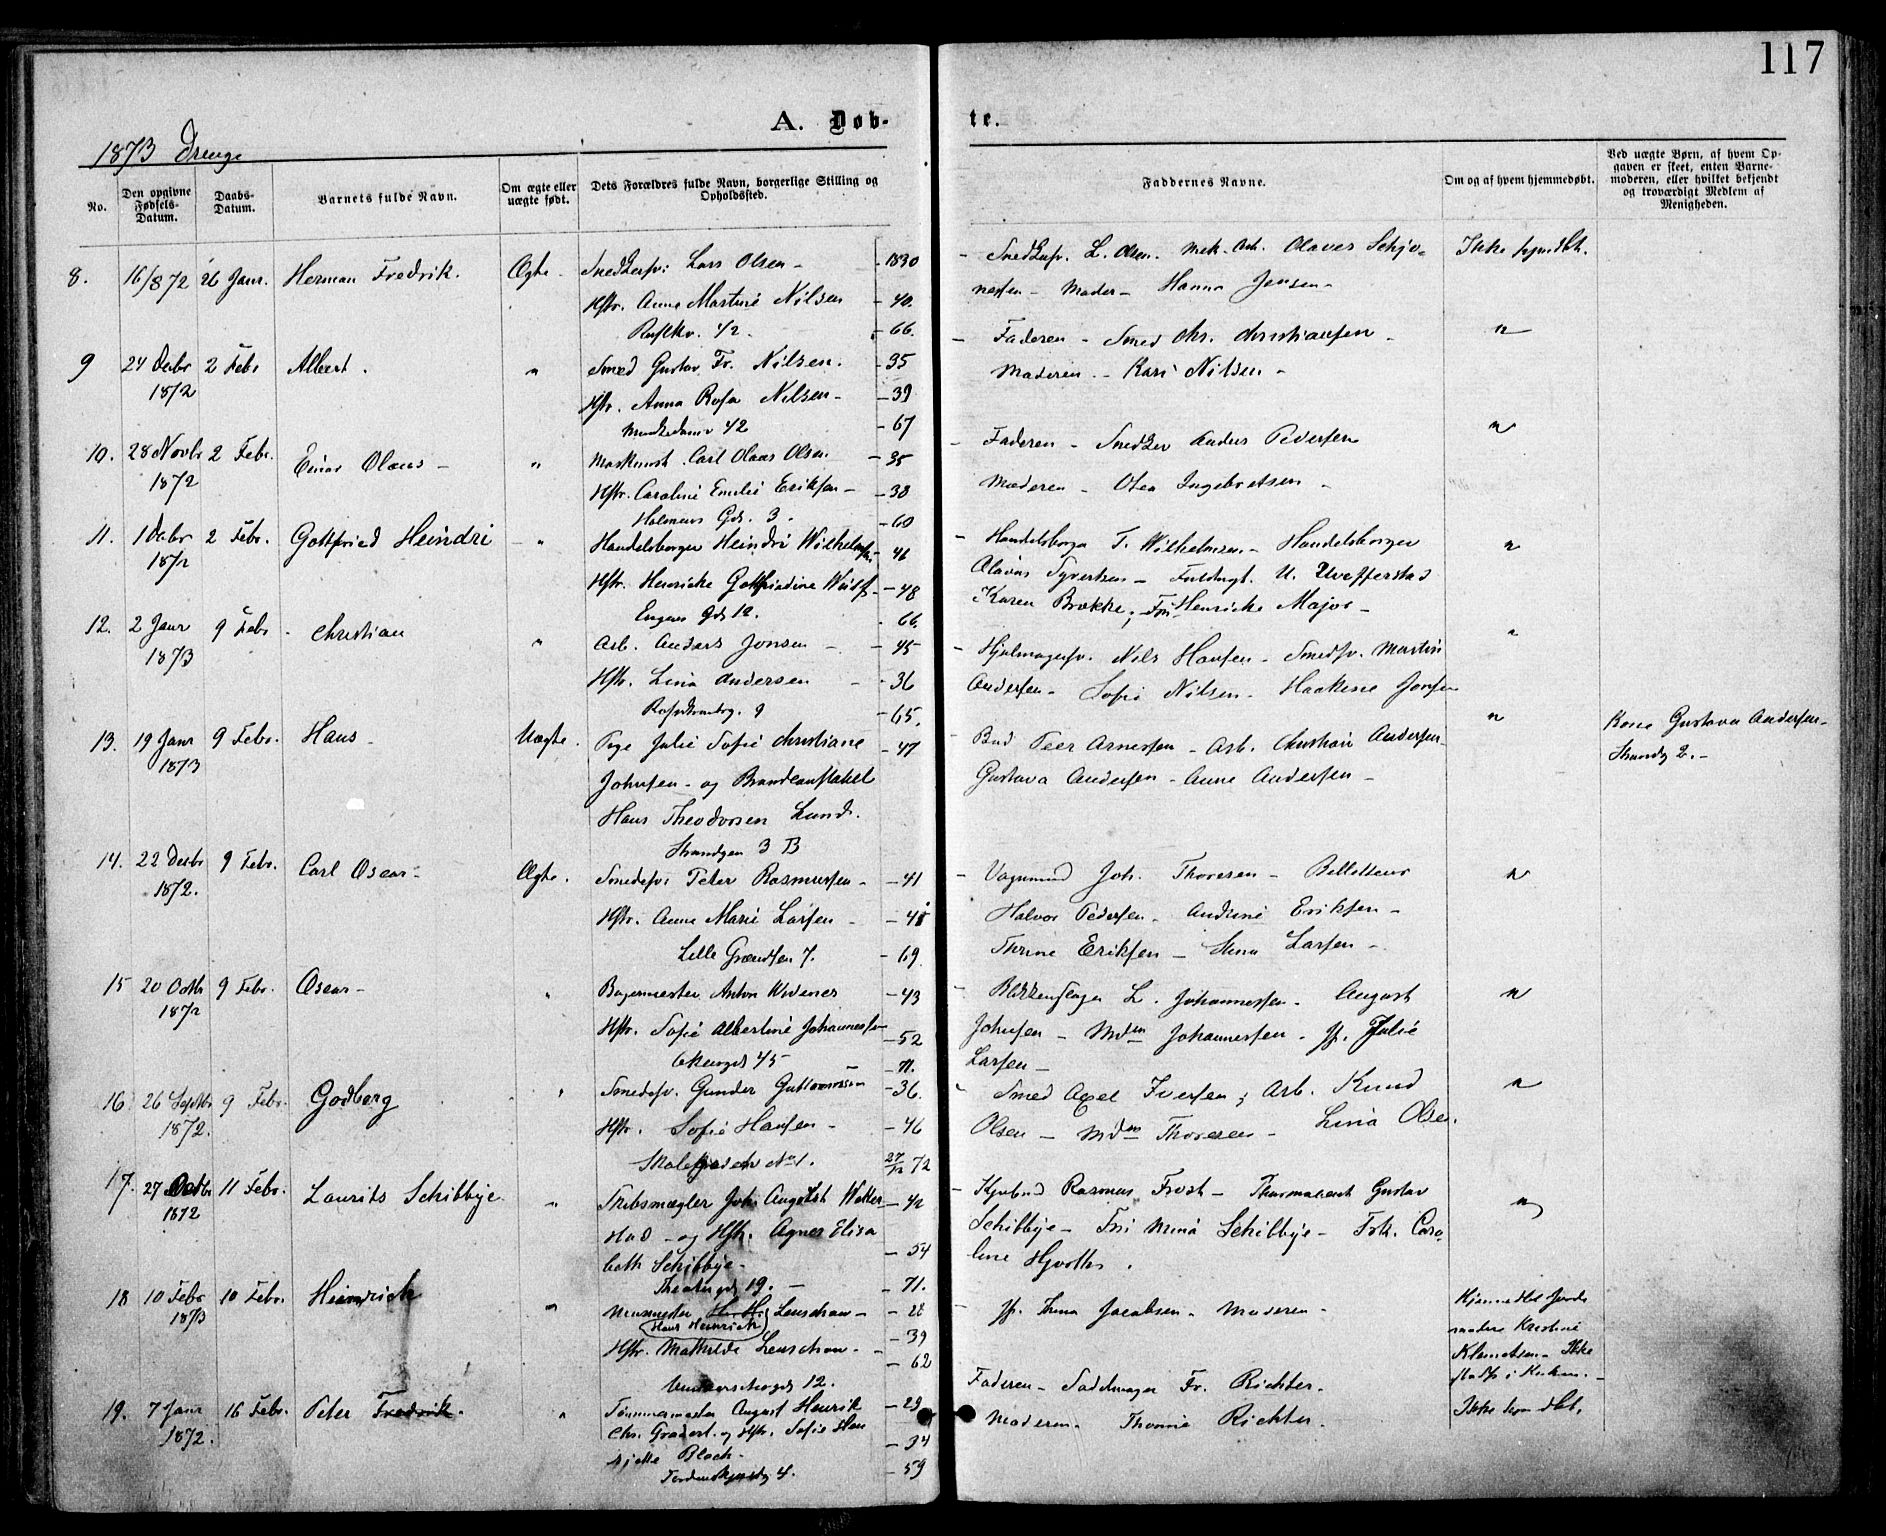 117
A. Døb-
te.
1873 Drenge
No.
Den opgivne Fødsels-Datum.
Daabs-Datum.
Barnets fulde Navn.
Om ægte eller uægte født.
Dets Forældres fulde Navn, borgerlige Stilling og Opholdssted.
Faddernes Navne.
Om og af hvem hjemmedøbt.
Ved uægte Børn, af hvem Op-
gaven er skeet, enten Barne-
moderen, eller hvilket bekjendt
og troværdigt Medlem af
Menigheden.
8. 16/8 72 26 Janr. Herman Fredrik. Ægte. Snedkersv: Lars Olsen - 1830
Hstr. Anne Martine Nilsen - 40.
42. - 66.
Snedkersv. L. Olsen. Mek. Arb. Olaves
- Moder - Hanna Jensen - Ikke hjmdbt.
9 24 Decbr 1872 2 Febr Albert. " Smed Gustav Fr. Nilsen. - 35
Hstr. Anna Rosa Nilsen - 39
42 - 67
Faderen - Smed Chr. Christiansen
Moderen - Kari Nilsen - "
10. 28 Novbr 1872 2 Febr. Einar Olaus - " Maskinist Carl Olaus Olsen - 35
Hstr. Caroline Emilie Eriksen - 38
Holmens Gd. 3. - 60
Faderen - Snedker Anders Pedersen
Moderen - Olea Ingebretsen - "
11. 1 Decbr 1872 2 Febr. Gottfried Heindri " Handelsborger Heindri Wilhelmsen - 46
Hstr. Henricke Gottfriedine - 48
Engens Gd 12. - 66.
Handelsborger T. Wilhelmsen - Handelsborger
Olavus Syvertsen - Fuldmgt. U.
Karen Brække; Henricke Major - "
12. 2 Janr 1873 9 Febr. Christian " Arb. Anders Jonsen - 45
Hstr. Lina Andersen - 36
9 - 65.
Hjulmagersv. Nils Hansen - Smedsv. Martin
Andersen - Sofie Nilsen - Haakine Jonsen "
13. 19 Janr 1873 9 Febr. Hans - Uægte. Pige Julie Sofie Christiane - 47
Johnsen - og Brandconstabel
Hans Theodorsen Lund.
Strandgen 3 B
Bud Peer Arnesen - Arb. Christian Andersen -
Gustava Andersen - Anne Andersen - "
Kone Gustava Andersen -
Strandg 2. -
14. 22 Decbr 1872. 9 Febr. Carl Oscar - Ægte. Smedesv: Peter Rasmussen - 41
Hstr. Anne Marie Larsen - 41
Lille Grændsen 7. - 69.
Vognmand Joh. Thoresen -
Halvor Pedersen - Andrine Eriksen -
Thrine Eriksen - Stina Larsen - "
15 20 Octbr 1872 9 Febr. Oscar - " Bagermester Anton - 43
Hstr. Sofie Albertine Johannessen - 52
45 - 71.
Blikkenslager L. Johannessen - August
Johnsen - Mdm Johannessen - Jf. Julie
Larsen - "
16. 26 Septbr 1872. 9 Febr. Godberg " Smedesv. Gunder Guttormsen - 36.
Hstr. Sofie Hansen - - 46
No 1. 27/12 72
Smed Axel Iversen; Arb. Knud
Olsen - Mdm Thoresen - Lina Olsen. "
17. 27 Octbr 1872 11 Febr. Laurits Schibbye " Skibsmægler Joh. August - 42
og Hstr. Agnes Elisa
beth Schibbye - - 54
Theatergd 19. - - 71.
Rasmus Frost - Gustav
Schibbye - Mina Schibbye - Frk. Caro
line "
18 10 Febr 1873 10 Febr. Heinrich " H. H. Leuschow - - 28
Hans Heinrich - 39
Hstr. Mathilde Leuschow - - 62
12.
Jf. Jacobsen - Moderen -
Hjemmedbt Jorde
moder Kristine
Klemetsen - Ikke
stadf. i Kirken. -
19. 7 Janr 1872. 16 Febr. Peter Fredrik. " August Henrik - 29
Chr. og Hstr. Sofie Hen
Bloch - - 34
4. - 59
Faderen - Sadelmager Fr. Richter.
Moderen. Richter. Ikke hjmdbt.